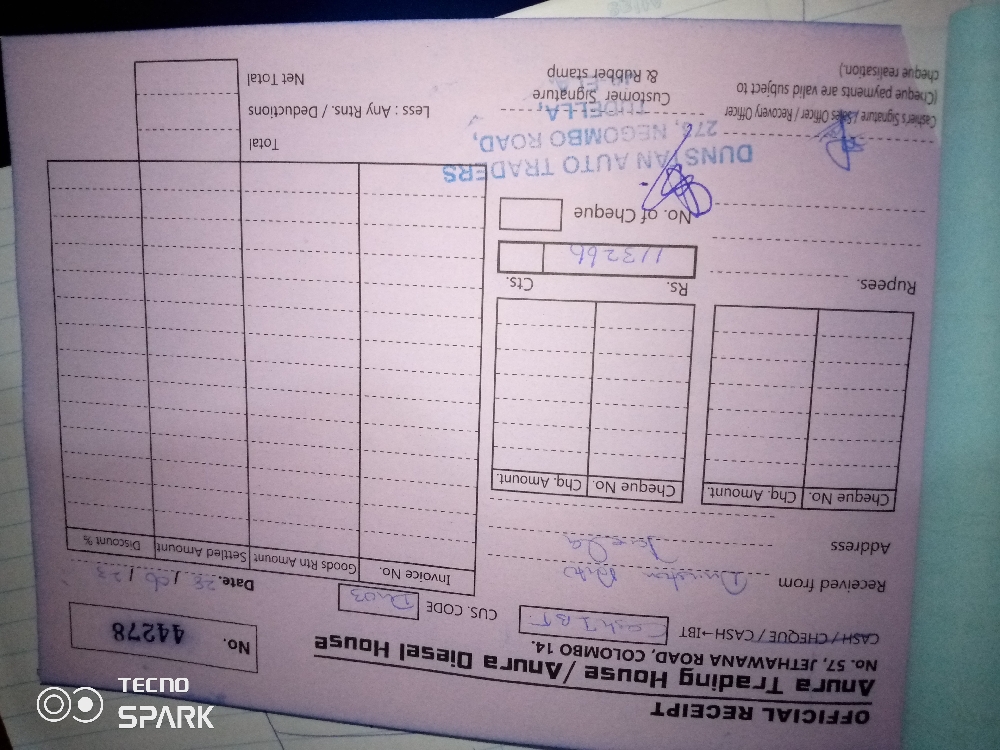 OFFICIAL RECEIPT
Anura Trading House / Anura Diesel House
No. 57, JETHAWANA ROAD, COLOMBO 14.
No. 44278
CASH / CHEQUE / CASH→IBT Cash IBT
CUS. CODE DU03
Date. 28 / 06 / 23
Received from Dunstan Auto
Address Tudella
Cheque No. Chq. Amount. Cheque No. Chq. Amount.
Invoice No. Goods Rtn Amount Settled Amount Discount %
Rupees.
Rs. Cts.
No. of Cheque
DUNSTAN AUTO TRADERS
NEGOMBO ROAD,
TUDELLA,
Cashier's Signature / Sales Officer / Recovery Officer
(Cheque payments are valid subject to
cheque realisation.)
Customer Signature
& Rubber stamp
Total
Less : Any Rtns / Deductions
Net Total
TECNO
SPARK